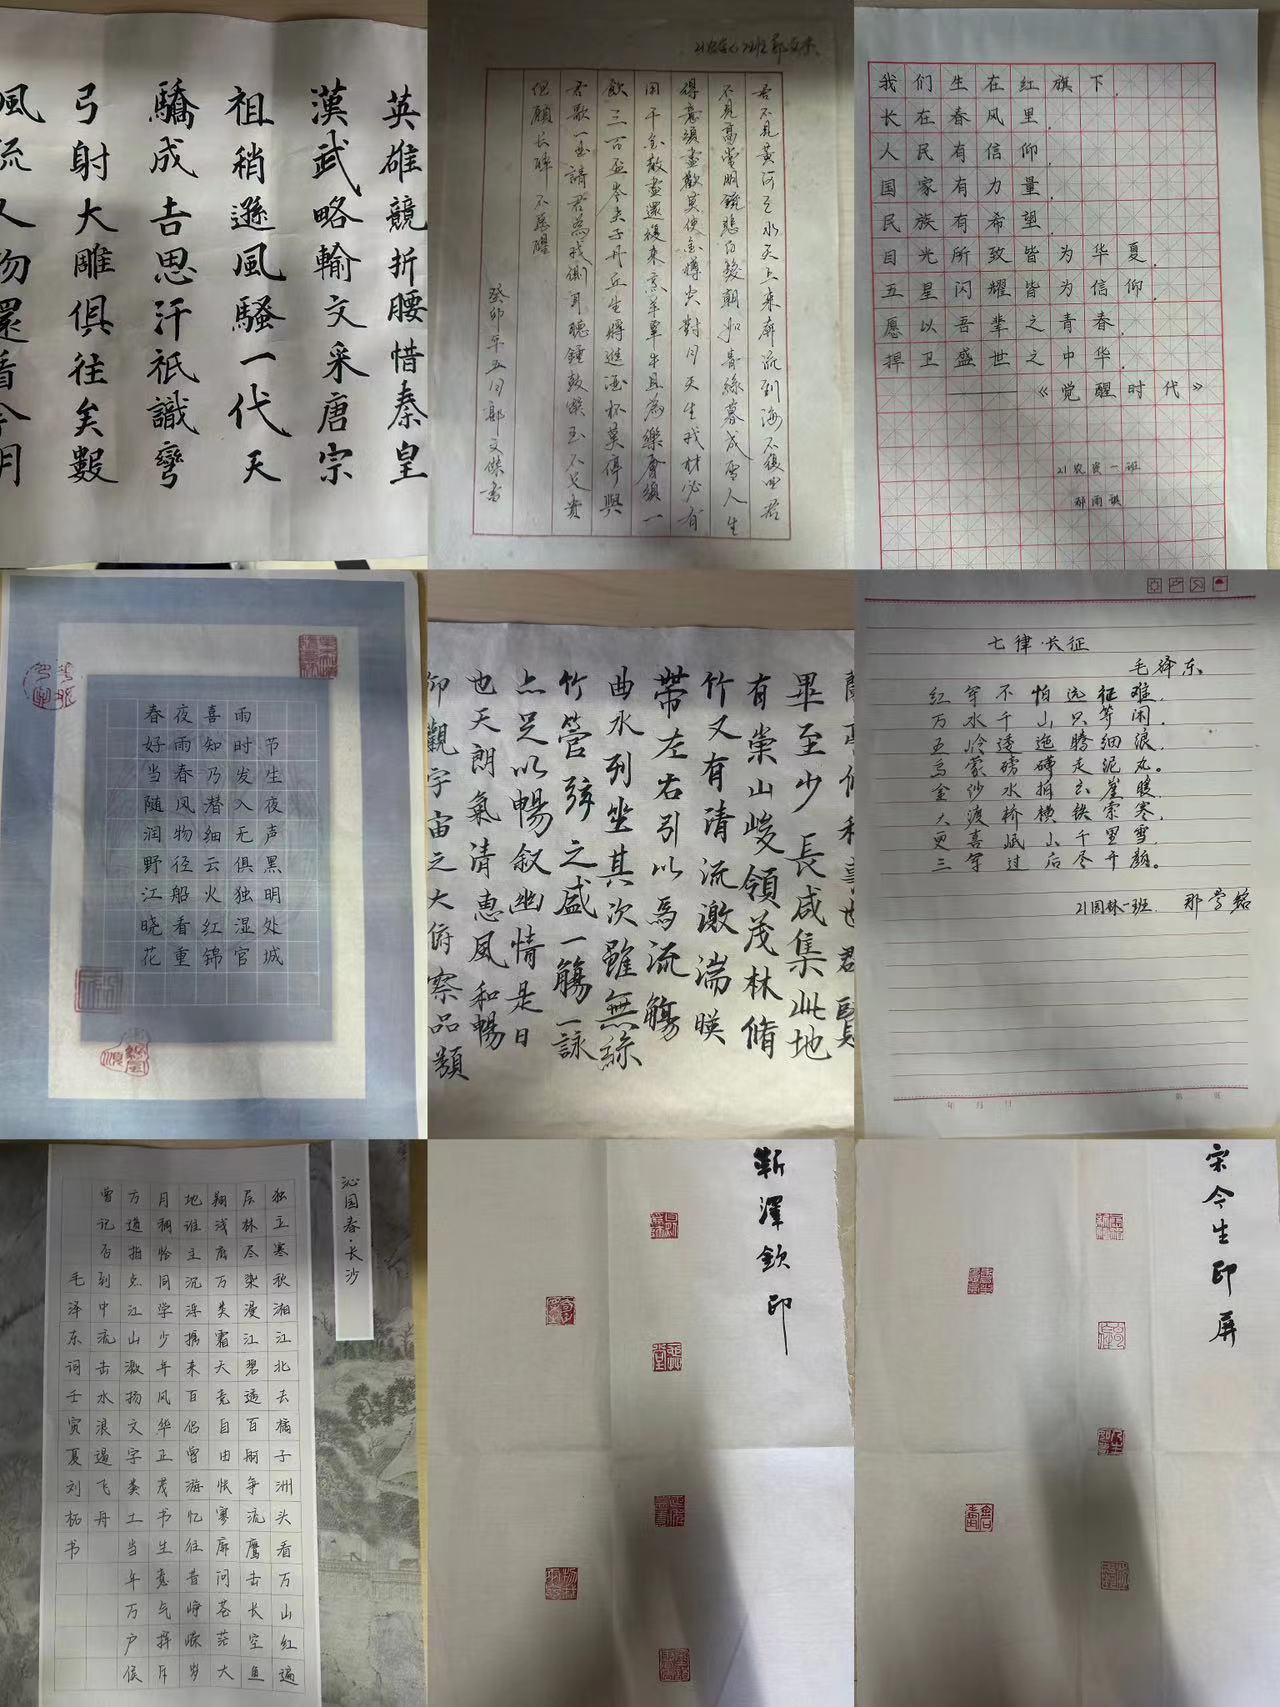 英雄競折腰惜秦皇
漢武略輸文采唐宗
祖稍遜風騷一代天
驕成吉思汗祇識彎
弓射大雕俱往矣數
風流人物還看今
君不見黃河之水天上来奔流到海不復回君
不見高堂明鏡悲白髮朝如青絲暮成雪人生
得意須盡歡莫使金樽空對月天生我材必有
用千金散盡還復来烹羊宰牛且為樂會須一
飲三百盃岑夫子丹丘生將進酒杯莫停與
君歌一曲請君為我側耳聽鐘鼓饌玉不足貴
但願长醉不願醒
癸卯年五月郭文傑書
我们生在红旗下,
长在春风里,
人民有信仰,
国家有力量,
民族有希望,
目光所致皆为华夏,
五星闪耀皆为信仰,
愿以吾辈之青春,
捍卫盛世之中华,
——《觉醒时代》
21农资一班
春夜喜雨
好雨知时节
当春乃发生
随风潜入夜
润物细无声
野径云俱黑
江船火独明
晓看红湿处
花重锦官城
事也君賢
畢至少長咸集此地
有崇山峻領茂林脩
竹又有清流激湍暎
帶左右引以為流觴
曲水列坐其次雖無絲
竹管弦之盛一觴一詠
亦足以暢叙幽情是日
也天朗氣清惠風和暢
仰觀宇宙之大俯察品類
七律·长征
毛泽东
红军不怕远征难,
万水千山只等闲,
五岭逶迤腾细浪,
乌蒙磅礴走泥丸。
金沙水拍云崖暖,
大渡桥横铁索寒,
更喜岷山千里雪,
三军过后尽开颜。
21园林一班
年 月 日
第 页
沁园春·长沙
独立寒秋湘江北去橘子洲头看万山红遍
层林尽染漫江碧透百舸争流鹰击长空鱼
翔浅底万类霜天竞自由怅寥廓问苍茫大
地谁主沉浮携来百侣曾游忆往昔峥嵘岁
月稠恰同学少年风华正茂书生意气挥斥
方遒指点江山激扬文字粪土当年万户侯
曾记否到中流击水浪遏飞舟
毛泽东词壬寅夏刘柘书
靳澤欽印
宋今生印屏